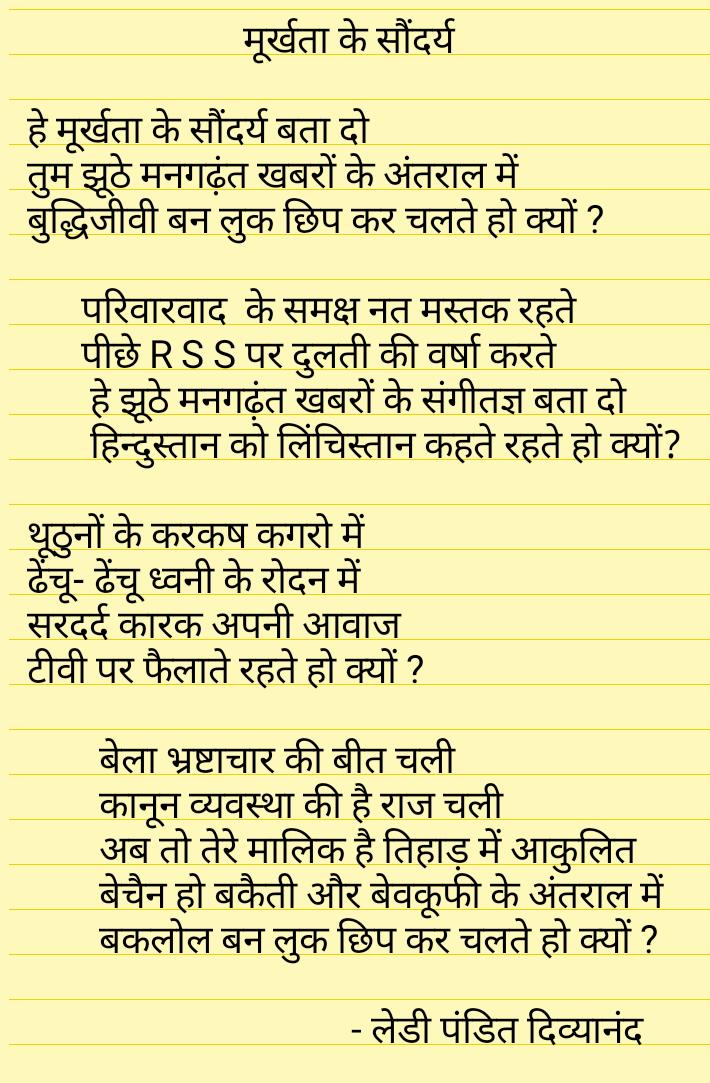 मूर्खता के सौंदर्य
हे मूर्खता के सौंदर्य बता दो
तुम झूठे मनगढ़ंत खबरों के अंतराल में
बुद्धिजीवी बन लुक छिप कर चलते हो क्यों ?
परिवारवाद के समक्ष नत मस्तक रहते
पीछे R S S पर दुलती की वर्षा करते
हे झूठे मनगढ़ंत खबरों के संगीतज्ञ बता दो
हिन्दुस्तान को लिंचिस्तान कहते रहते हो क्यों?
थूठुनों के करकष कगरो में
ढेंचू- ढेंचू ध्वनी के रोदन में
सरदर्द कारक अपनी आवाज
टीवी पर फैलाते रहते हो क्यों ?
बेला भ्रष्टाचार की बीत चली
कानून व्यवस्था की है राज चली
अब तो तेरे मालिक है तिहाड़ में आकुलित
बेचैन हो बकैती और बेवकूफी के अंतराल में
बकलोल बन लुक छिप कर चलते हो क्यों ?
- लेडी पंडित दिव्यानंद